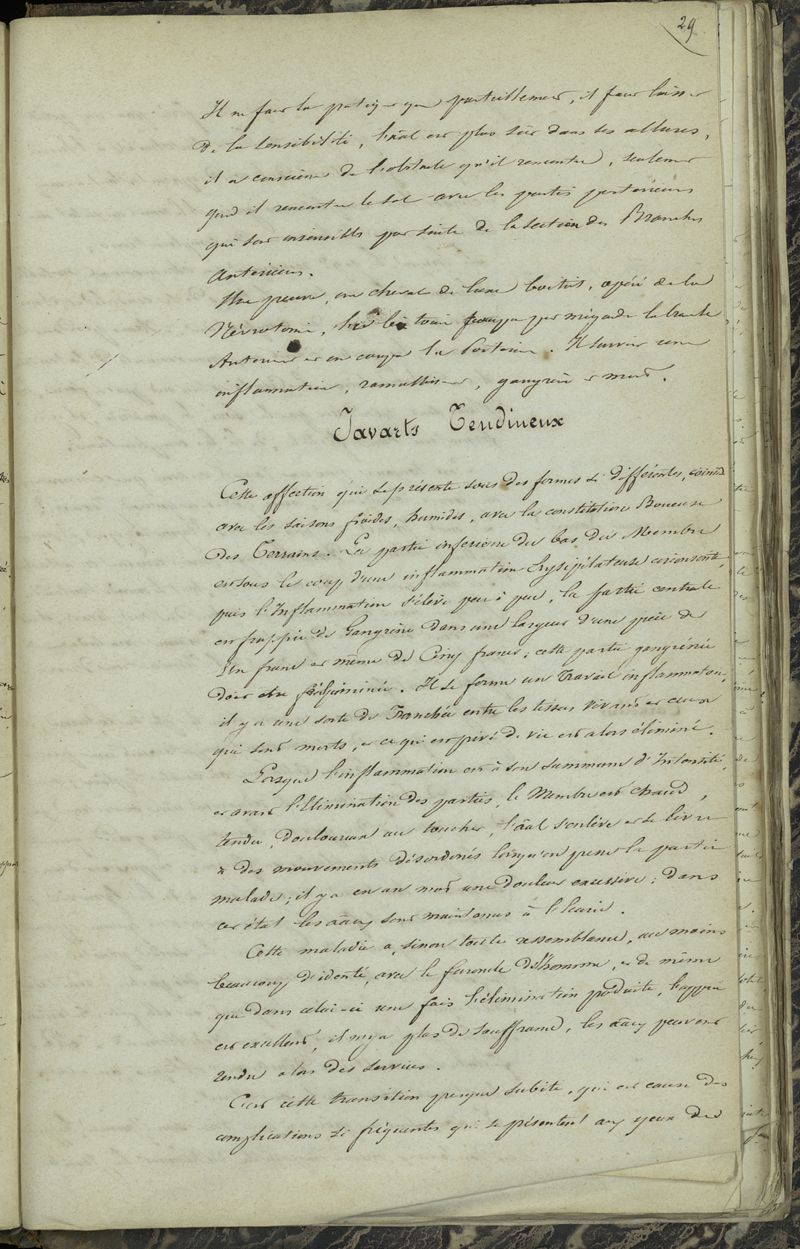 29
Il ne faut la pratiquer que partiellement, il faut laisser
de la sensibilité, l'aal est plus sûr dans ses allures,
il a conscience de l'obstacle qu'il rencontre, seulement
quand il rencontre le sol avec les parties postérieures
qui sont insensibles par suite de la section des Branches
Antérieures.
Une preuve, un cheval de luxe boitait, opéré de la
Névrotomie, le bistouri coupa par mégarde la branche
Antérieure et on coupa la Postérieure. Il survint une
inflammation, ramollissement, gangrène et mort.
Javarts Tendineux
Cette affection qui se présente sous des formes si différentes, coincide
avec les saisons froides, humides, avec la constitution Boueuse
des Terrains. La partie inferieure du bas du Membre
est sous le coup d'une inflammation Erysipélateuse circonscrite,
puis l'Inflammation s'élève peu à peu, la partie centrale
est frappée de Gangrène dans une largeur d'une pièce de
Un franc et même de Cinq francs; cette partie gangrénée
doit être éliminée. Il se forme un Travail inflammatoire,
il y a une sorte de Tranchée entre les tissus vivants et ceux
qui sont morts, et ce qui est privé de vie est alors éliminé.
Lorsque l'inflammation est à son summum d'Intensité,
et avant l'Elimination des parties, le Membre est chaud,
tendu, douloureux au toucher, l'aal s'enlève et se livre
à des mouvements désordonés lorsqu'on presse la partie
malade; il y a en un mot une douleur excessive; dans
cet état les aaux sont maintenus à l'Ecurie.
Cette maladie a, sinon toute ressemblance, au moins
beaucoup d'identé, avec le furoncle de l'homme, et de même
que dans celui-ci une fois l'élimination produite, l'appui
est excellent, il n'y a plus de souffrance, les aaux peuvent
rendre alors des services.
C'est cette transition presque subite, qui est cause des
complications si fréquentes qui se présentent aux yeux des